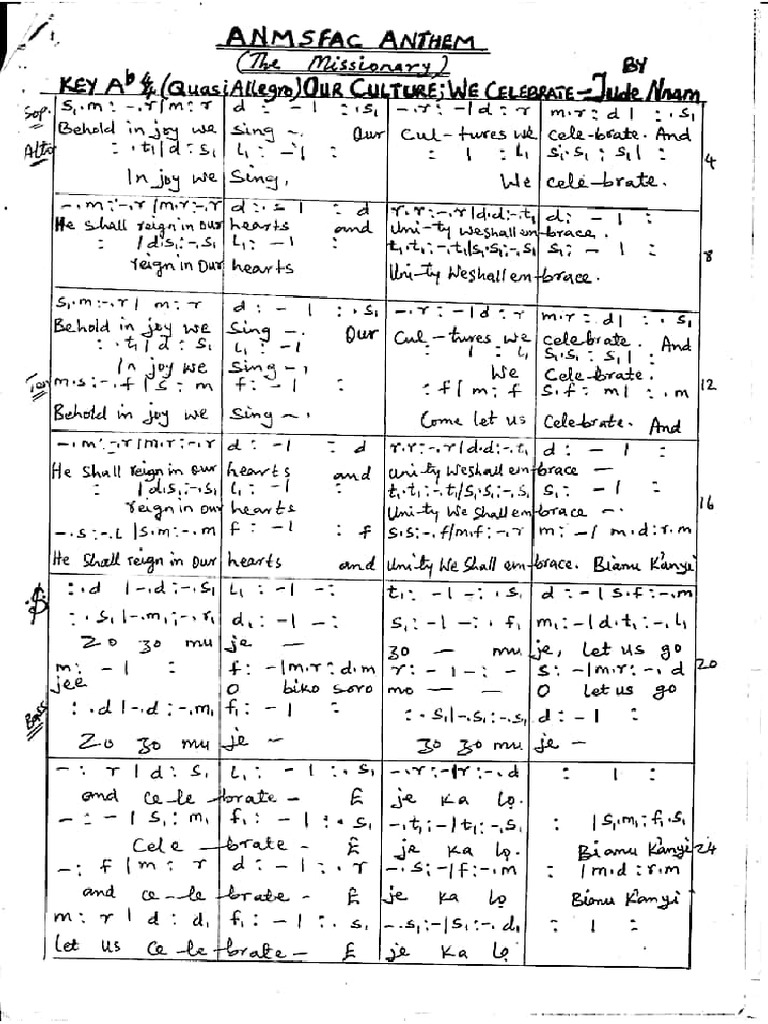 ANMSFAC ANTHEM
(The Missionary)
BY
KEY Ab 4/4 (Quasi Allegro) OUR CULTURE; WE CELEBRATE - Jude Nnam
Sop. s₁.m :-.r | m : r d : - | : .s₁ -.r : - | d : r m.r : d | : .s₁
Behold in joy we Sing -. Our Cul-tures we cele-brate. And
Alto : .t₁ | d : s₁ l₁ : - | : : | : l₁ s₁.s₁ : s₁ | : 4
In joy we Sing, We cele-brate.
-.m :-.r | m.r :-.r d : - | : d r.r :-.r | d.d :-.t₁ d : - | :
He shall reign in Our hearts and Uni-ty We shall em-brace.
: | d.s₁ :-.s₁ l₁ : - | : t₁.t₁ :-.t₁ | s₁.s₁ :-.s₁ s₁ : - | : 8
reign in Our hearts Uni-ty We shall em-brace.
s₁.m :-.r | m : r d : - | : .s₁ -.r : - | d : r m.r : d | : .s₁
Behold in joy we Sing -. Our Cul-tures we celebrate. And
: .t₁ | d : s₁ l₁ : - | : | : l₁ s₁.s₁ : s₁ | :
In joy we Sing -, We Cele-brate.
Ten m.s :-.f | s : m f : - | : : f | m : f s.f : m | : .m 12
Behold in joy we Sing ~, Come let us Celebrate. And
-.m :-.r | m.r :-.r d : - | : d r.r :-.r | d.d :-.t₁ d : - | :
He Shall reign in Our hearts and Unity We shall em brace -
: | d.s₁ :-.s₁ l₁ : - | : t₁.t₁ :-.t₁ | s₁.s₁ :-.s₁ s₁ : - | : 16
reign in our hearts Uni-ty We shall em-brace -.
-.s :-.l | s.m :-.m f : - | : f s.s :-.f | m.f :-.r m : - | m.d : r.m
He Shall reign in Our hearts and Unity We Shall em-brace. Bianu Kanyi
: .d | -.d :-.s₁ l₁ : - | - : t₁ : - | - : .s₁ d : - | s.f :-.m
: .s₁ | -.m₁ :-.r₁ d₁ : - | - : s₁ : - | - : .f₁ m₁ : - | d.t₁ :-.l₁
Zo zo mu je — zo — mu je, let us go
m : - | : f : - | m.r : d.m r : - | - : - s : - | m.r :-.d 20
jee O biko soro mo — — O let us go
Bass : .d | -.d :-.m₁ f₁ : - | : : .s₁ | -.s₁ :-.s₁ d : - | :
Zo zo mu je — zo zo mu je —
- : r | d : s₁ l₁ : - | : .s₁ -.r : - | r :-.d : | :
and ce-le brate - E je Ka lo.
- : - | s₁ : m₁ f₁ : - | : .s₁ -.t₁ : - | t₁ :-.s₁ : | s₁.m₁ : f₁.s₁
Cele - brate - E je Ka lo. Bianu Kanyi 24
- : f | m : r d : - | : .r -.s : - | f :-.m : | m.d : r.m
and ce-le brate - E je Ka lo Bianu Kanyi
m : r | d : d₁ f₁ : - | : .s₁ -.s₁ : - | s₁ :-.d₁ : | :
let us ce-le-brate - E je Ka lo.